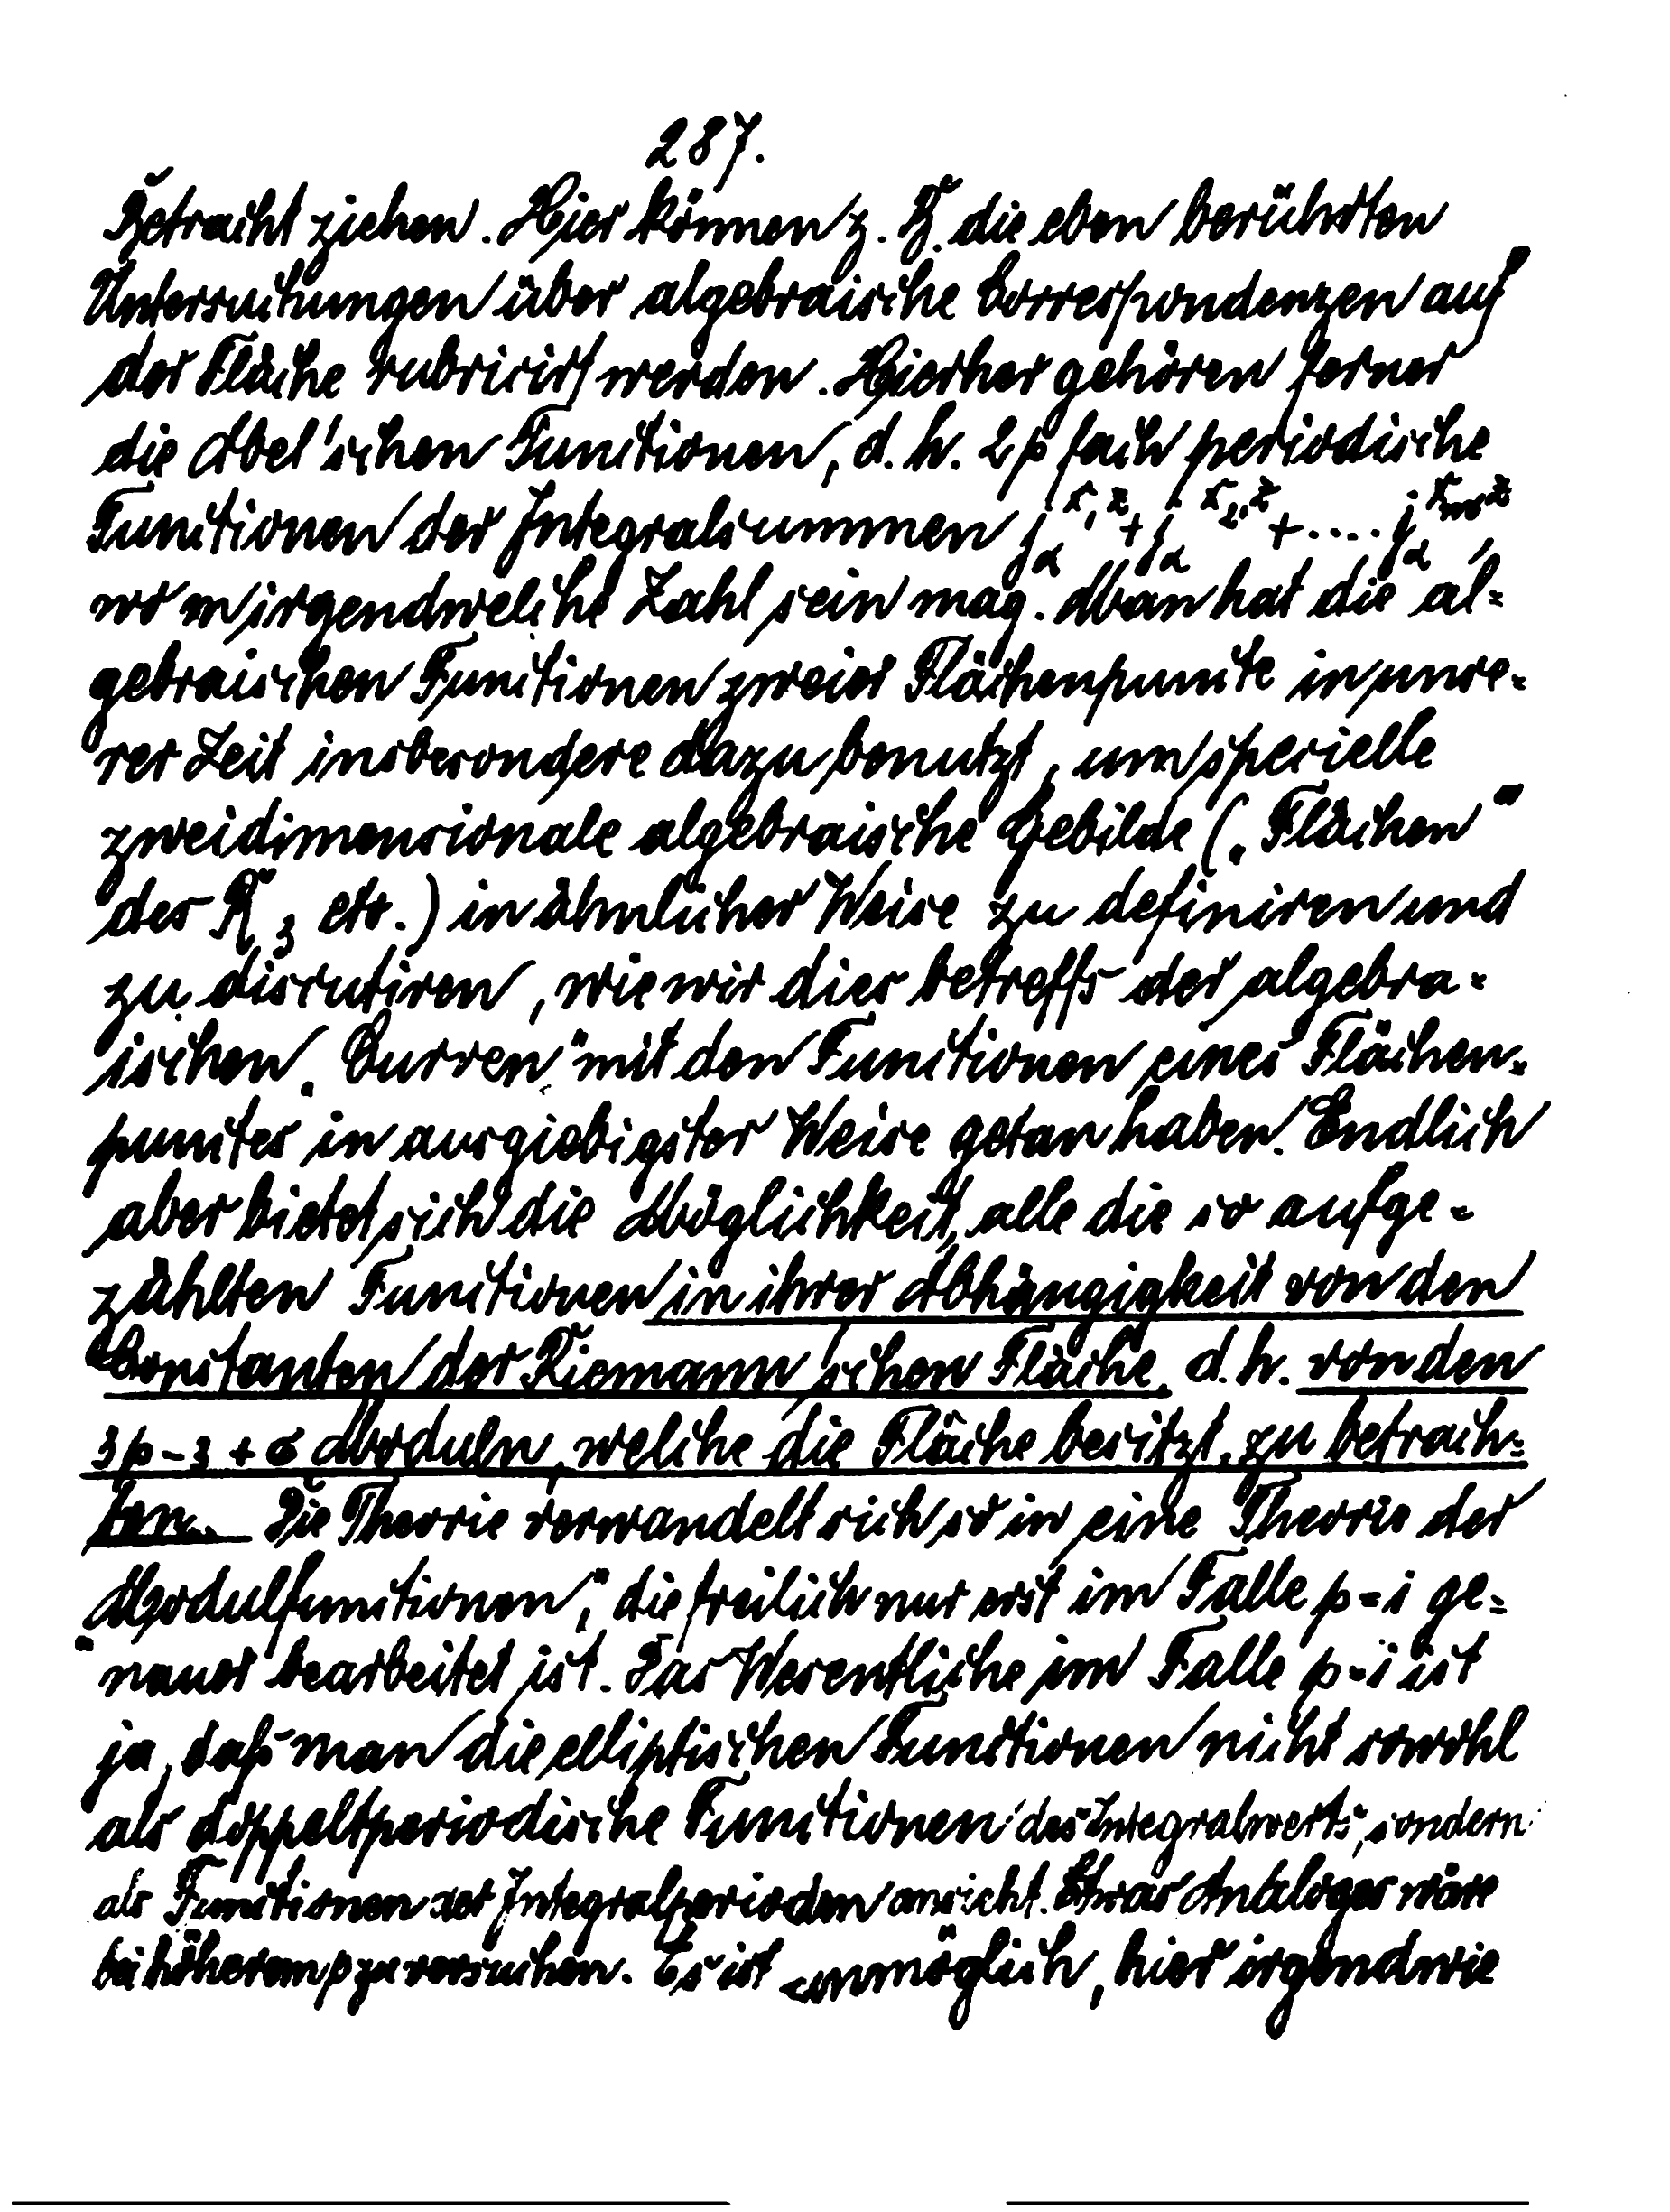 287.
Betracht ziehen. Hier können z. B. die eben berührten
Untersuchungen über algebraische Correspondenzen auf
der Fläche rubricirt werden. Hierher gehören ferner
die Abel'schen Functionen, d. h. 2p fach periodische
Functionen der Integralsummen j_α^{x_1 z} + j_α^{x_2 z} + .... j_α^{x_m z},
wo m irgendwelche Zahl sein mag. Man hat die al=
gebraischen Functionen zweier Flächenpuncte in unse=
rer Zeit insbesondere dazu benutzt, um specielle
zweidimensionale algebraische Gebilde („Flächen"
des R_3 etc.) in ähnlicher Weise zu definiren und
zu discutiren, wie wir dies betreffs der algebra=
ischen „Curven" mit den Functionen eines Flächen=
punctes in ausgiebigster Weise getan haben. Endlich
aber bietet sich die Möglichkeit, alle die so aufge=
zählten Functionen in ihrer Abhängigkeit von den
Constanten der Riemann'schen Fläche, d. h. von den
3p-3+σ Moduln, welche die Fläche besitzt, zu betrach=
ten. Die Theorie verwandelt sich so in eine Theorie der
„Modulfunctionen", die freilich nur erst im Falle p=1 ge=
nauer bearbeitet ist. Das Wesentliche im Falle p=1 ist
ja, daß man die elliptischen Functionen nicht sowohl
als doppeltperiodische Functionen des Integralwerts, sondern
als Functionen der Integralperioden ansieht. Etwas Analoges wäre
bei höherem p zu versuchen. Es ist unmöglich, hier irgendwie